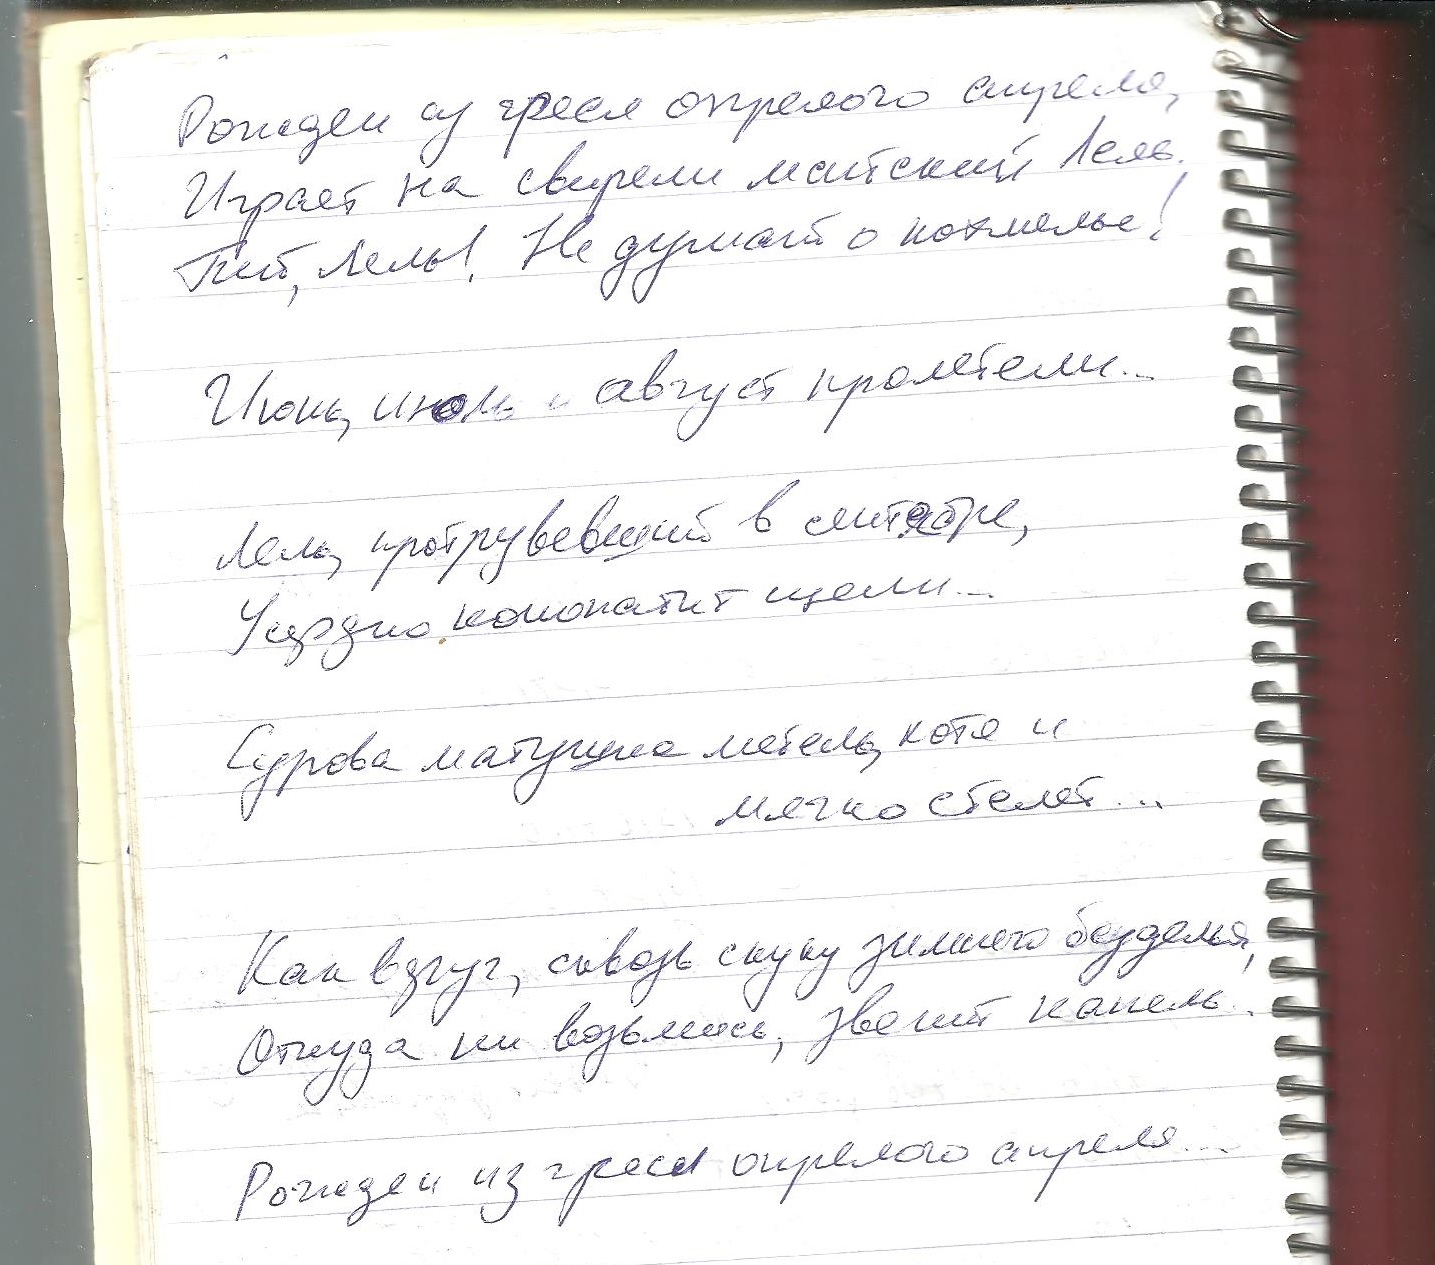 Рожден из чресл опрелого апреля,
Играет на свирели майский Лель.
Пей, Лель! Не думай о похмелье!
Июнь, июль и август пролетели...
Лель, протрезвевший в сентябре,
Усердно конопатит щели...
Сурова матушка метель, хотя и
мягко стелет...
Как вдруг, сквозь скуку зимнего безделья,
Откуда ни возьмись, звенит капель...
Рожден из чресл опрелого апреля...